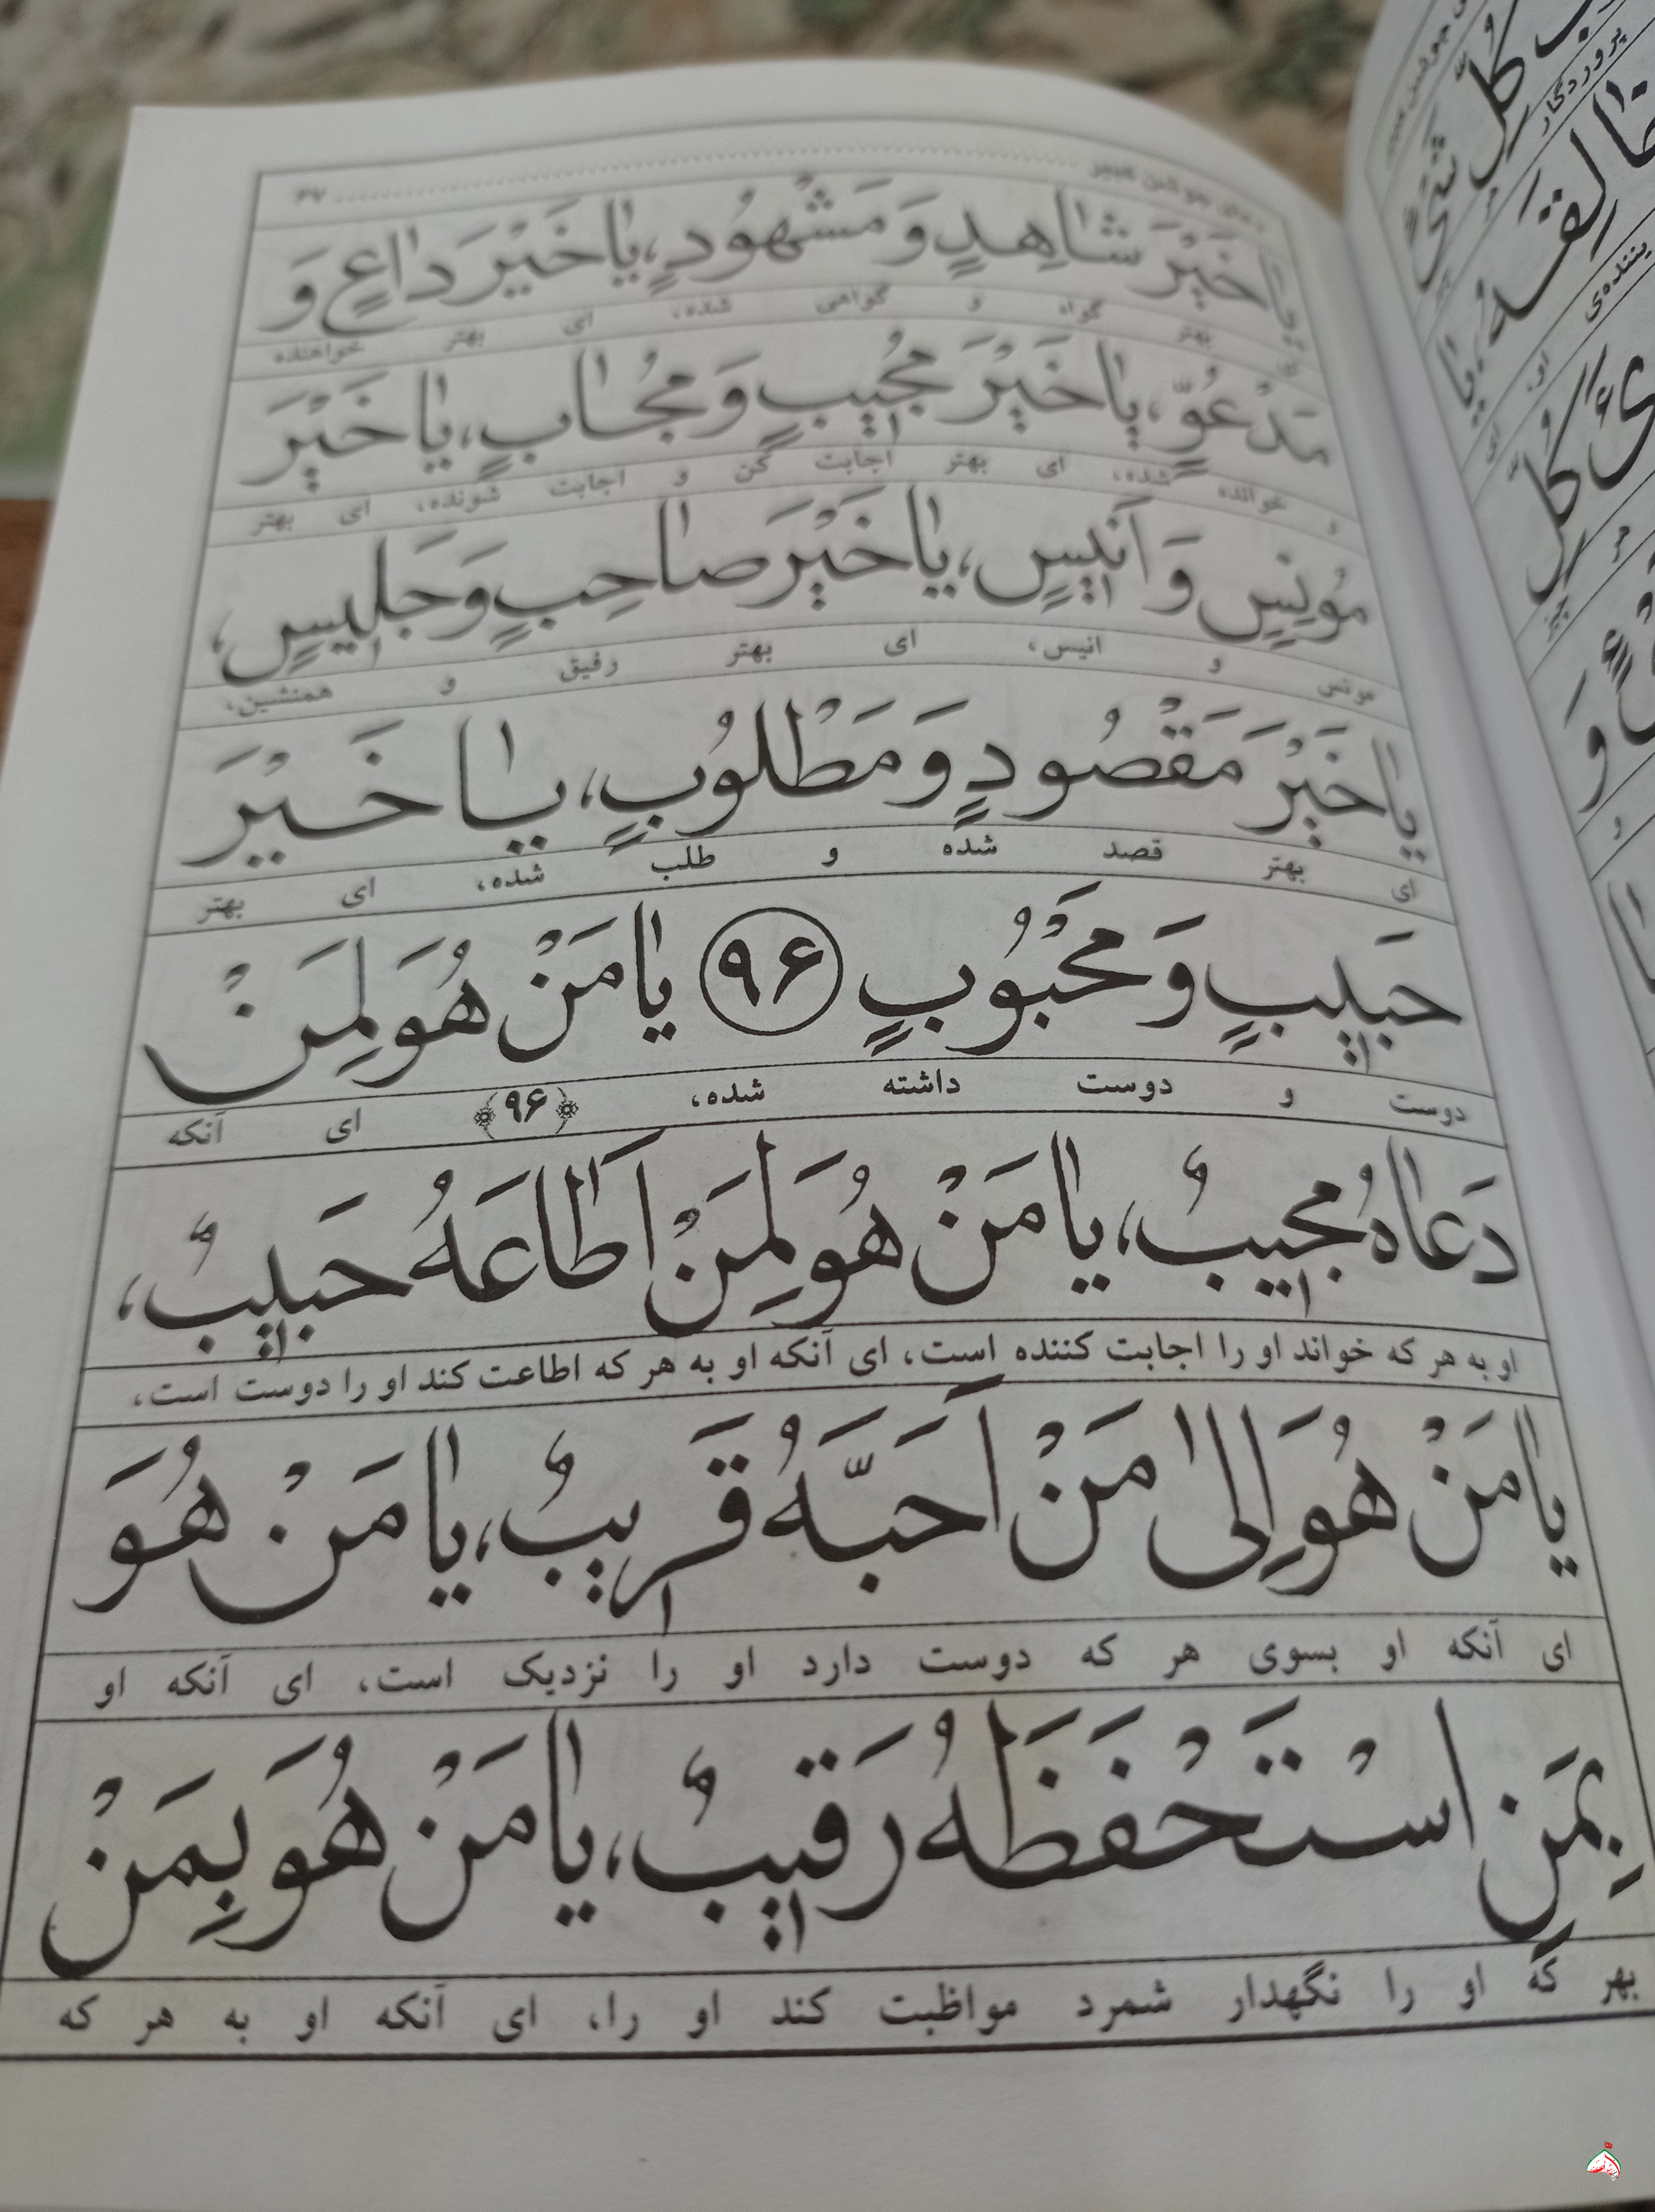 دعای جوشن کبیر ۶۷
خَيْرَ شاهِدٍ وَ مَشْهُودٍ، يا خَيْرَ داعٍ وَ
بهتر گواه و گواهی شده، ای بهتر خواهنده
مَدْعُوٍّ، يا خَيْرَ مُجيبٍ وَ مُجابٍ، يا خَيْرَ
و خوانده شده، ای بهتر اجابت کن و اجابت شونده، ای بهتر
مُونِسٍ وَ اَنيسٍ، يا خَيْرَ صاحِبٍ وَ جَليسٍ،
مونس و انیس، ای بهتر رفیق و همنشین،
يا خَيْرَ مَقْصُودٍ وَ مَطْلُوبٍ، يا خَيْرَ
ای بهتر قصد شده و طلب شده، ای بهتر
حَبيبٍ وَ مَحْبُوبٍ ۹۶ يا مَنْ هُوَ لِمَنْ
دوست و دوست داشته شده، ﴿۹۶﴾ ای آنکه
دَعاهُ مُجيبٌ، يا مَنْ هُوَ لِمَنْ اَطاعَهُ حَبيبٌ،
او به هر که خواند او را اجابت کننده است، ای آنکه او به هر که اطاعت کند او را دوست است،
يا مَنْ هُوَ اِلى مَنْ اَحَبَّهُ قَريبٌ، يا مَنْ هُوَ
ای آنکه او بسوی هر که دوست دارد او را نزدیک است، ای آنکه او
بِمَنِ اسْتَحْفَظَهُ رَقيبٌ، يا مَنْ هُوَ بِمَنْ
بهر که او را نگهدار شمرد مواظبت کند او را، ای آنکه او به هر که